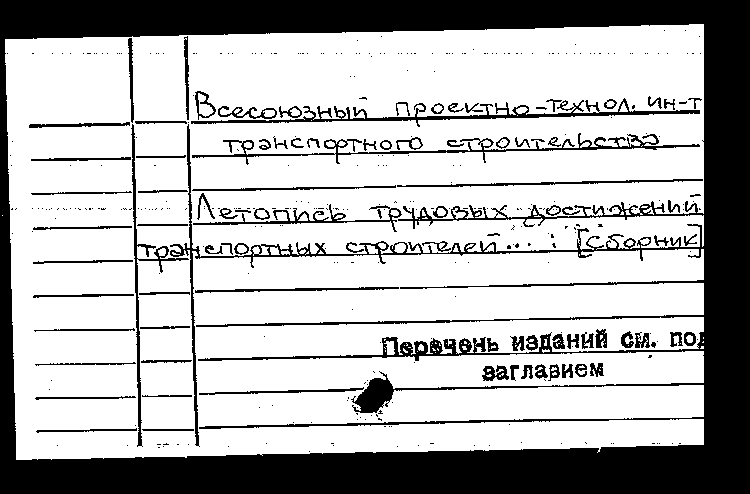 Всесоюзный проектно-технол. ин-т
транспортного строительства
Летопись трудовых достижений
транспортных строителей... : [Сборник]
Перечень изданий см. под
заглавием